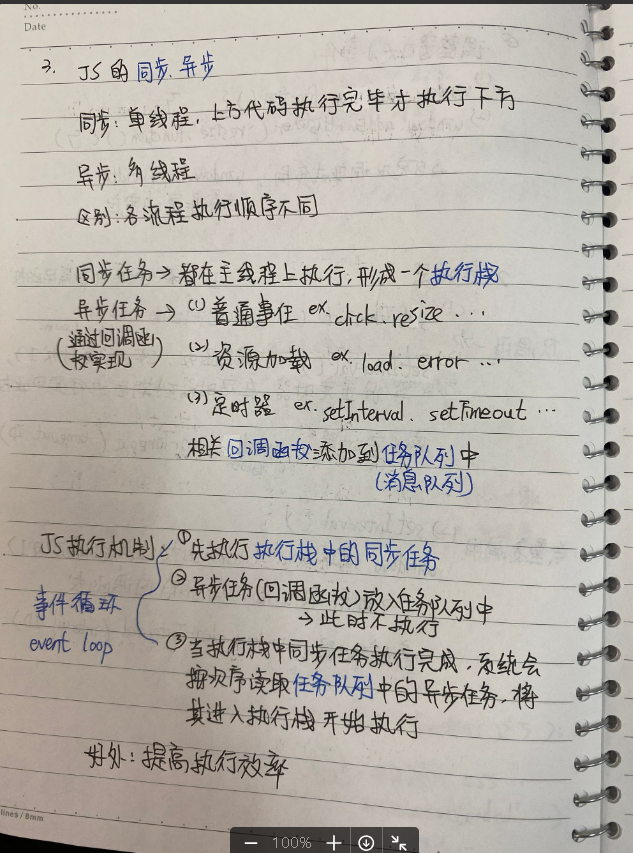 No.
Date
3. JS的同步.异步
同步:单线程,上方代码执行完毕才执行下方
异步:多线程
区别:各流程执行顺序不同
同步任务→都在主线程上执行,形成一个执行栈
异步任务→(1)普通事件 ex.click.resize...
(通过回调函数实现)
(2)资源加载 ex.load.error...
(3)定时器 ex.setInterval.setTimeout...
相关回调函数添加到任务队列中
(消息队列)
JS执行机制 ①先执行执行栈中的同步任务
事件循环
event loop
②异步任务(回调函数)放入任务队列中
→此时不执行
③当执行栈中同步任务执行完成,系统会
按次序读取任务队列中的异步任务,将
其进入执行栈开始执行
好处:提高执行效率
lines/8mm
100%